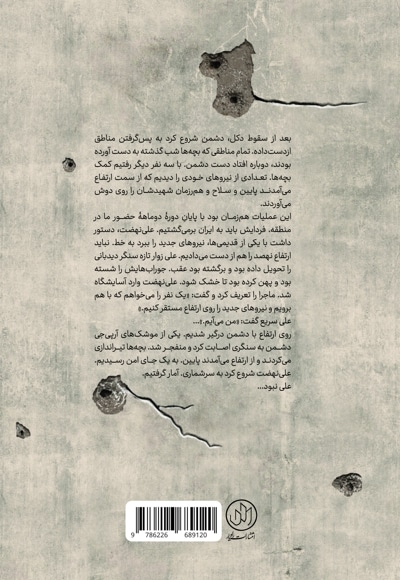 بعد از سقوط دکل، دشمن شروع کرد به پس‌گرفتن مناطق
ازدست‌داده. تمام مناطقی که بچه‌ها شب گذشته به دست آورده
بودند، دوباره افتاد دست دشمن. با سه نفر دیگر رفتیم کمک
بچه‌ها. تعدادی از نیروهای خودی را دیدیم که از سمت ارتفاع
می‌آمدند پایین و سلاح و هم‌رزمان شهیدشان را روی دوش
می‌آوردند.
این عملیات هم‌زمان بود با پایان دورۀ دوماهۀ حضور ما در
منطقه. فردایش باید به ایران برمی‌گشتیم. علی‌نهضت، دستور
داشت با یکی از قدیمی‌ها، نیروهای جدید را ببرد به خط. نباید
ارتفاع نهصد را هم از دست می‌دادیم. علی زوار تازه سنگر دیدبانی
را تحویل داده بود و برگشته بود عقب. جوراب‌هایش را شسته
بود و پهن کرده بود تا خشک شود. علی‌نهضت وارد آسایشگاه
شد. ماجرا را تعریف کرد و گفت: «یک نفر را می‌خواهم که با هم
برویم و نیروهای جدید را روی ارتفاع مستقر کنیم.»
علی سریع گفت: «من می‌آیم.»...
روی ارتفاع با دشمن درگیر شدیم. یکی از موشک‌های آرپی‌جی
دشمن به سنگری اصابت کرد و منفجر شد. بچه‌ها تیراندازی
می‌کردند و از ارتفاع می‌آمدند پایین. به یک جای امن رسیدیم.
علی‌نهضت شروع کرد به سرشماری. آمار گرفتیم.
علی نبود...
9 786226 689120